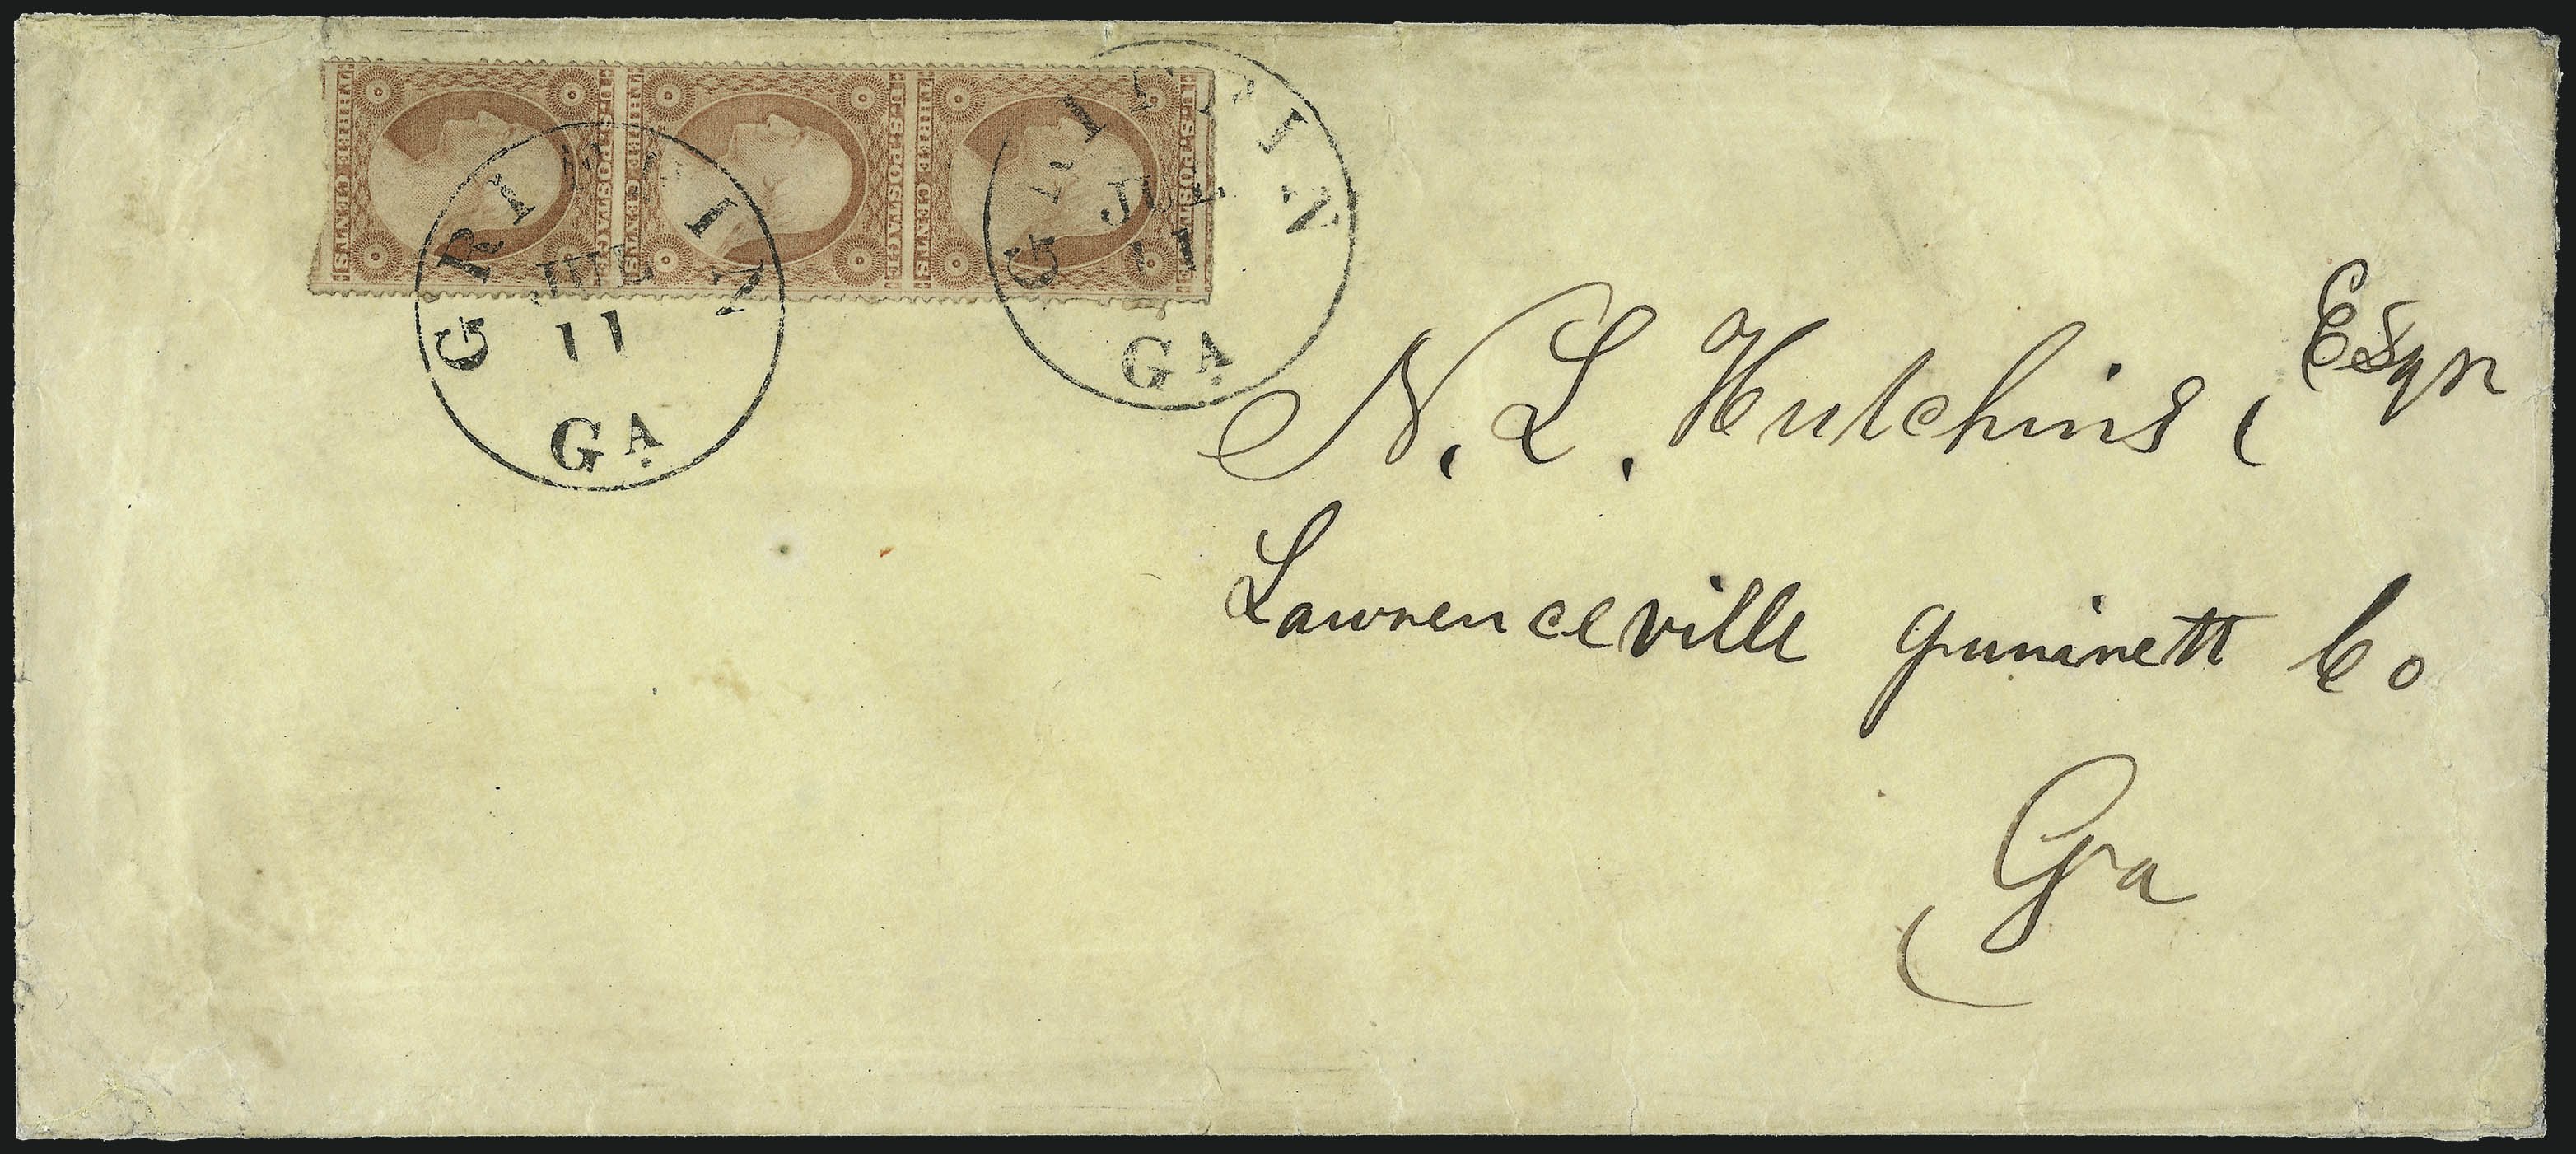 THREE CENTS U.S. POSTAGE THREE CENTS U.S. POSTAGE THREE CENTS U.S. POSTAGE
GRIFFIN
JUL
11
GA.
GRIFFIN
JUL
11
GA.
N. L. Hutchins, Esqr
Lawrenceville Gwninett Co
Ga